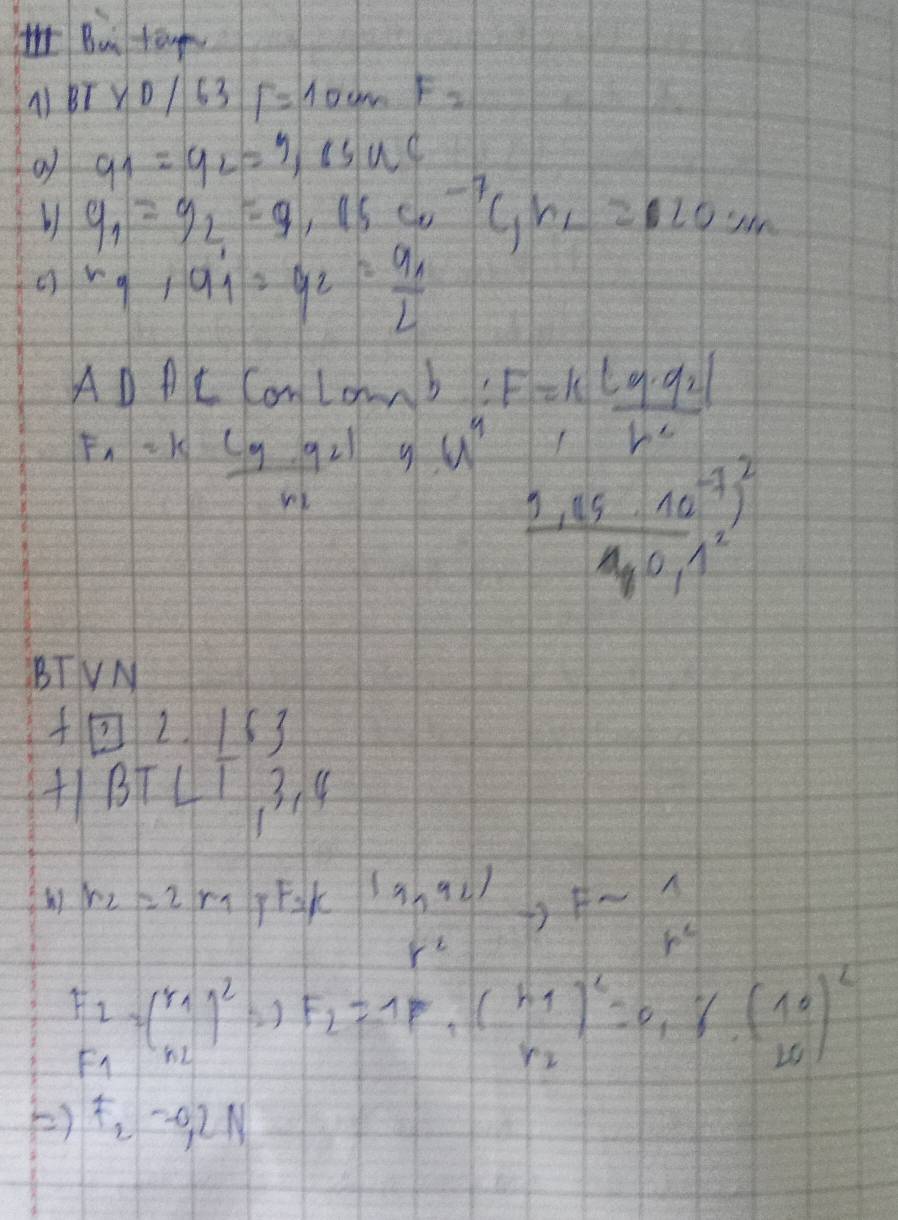 III Bài tập
1) BT VD/63 r=10cm F=
a) q1 = q2 = 9,45 µC
b) q1 = q2 = 9,45 10^-7 C, r2 = 20 cm
c) r1, q'1 = q2 = q1/2
AD ĐL Conlomb : F = k |q.q2|/r²
F1 = k |q.q2|/r2 9.10^9
9,45 . 10^-7)²/0,1²
BTVN
+ ? 2. /63
+) BTLT ,3,4
b) r2 = 2r1, F=k |q1q2|/r² -> F ~ 1/r²
F2/F1 = (r1/r2)² => F2 = 1F . (r1/r2)² = 0,8 . (10/20)²
=> F2 = 0,2N